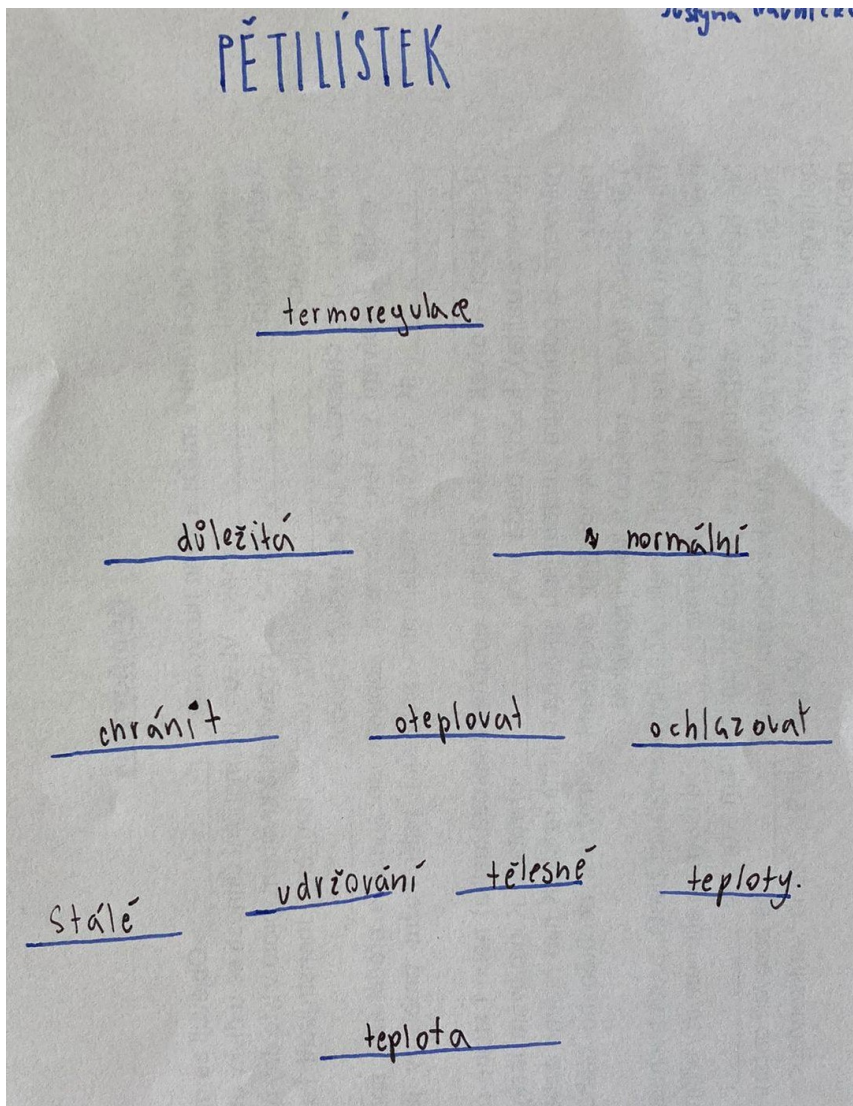 PĚTILÍSTEK
termoregulace
důležitá normální
chránit oteplovat ochlazovat
Stálé udržování tělesné teploty.
teplota